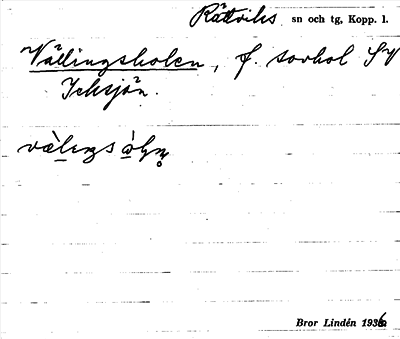 Rättviks sn och tg, Kopp. l.
Vällingsholen, f. sovhol SV
Icksjön.
Bror Lindén 1936